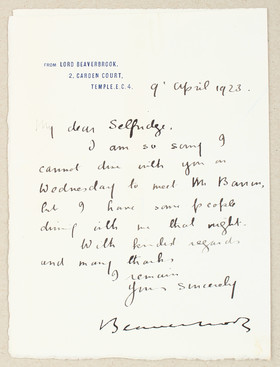 FROM LORD BEAVERBROOK.
2, GARDEN COURT,
TEMPLE, E.C.4.
9 April 1923.
My dear Selfridge.
I am so sorry I
cannot dine with you on
Wednesday to meet Mr
but I have some people
dining with me that night.
With kindest regards
and many thanks,
I remain
Yours sincerely
Beaverbrook